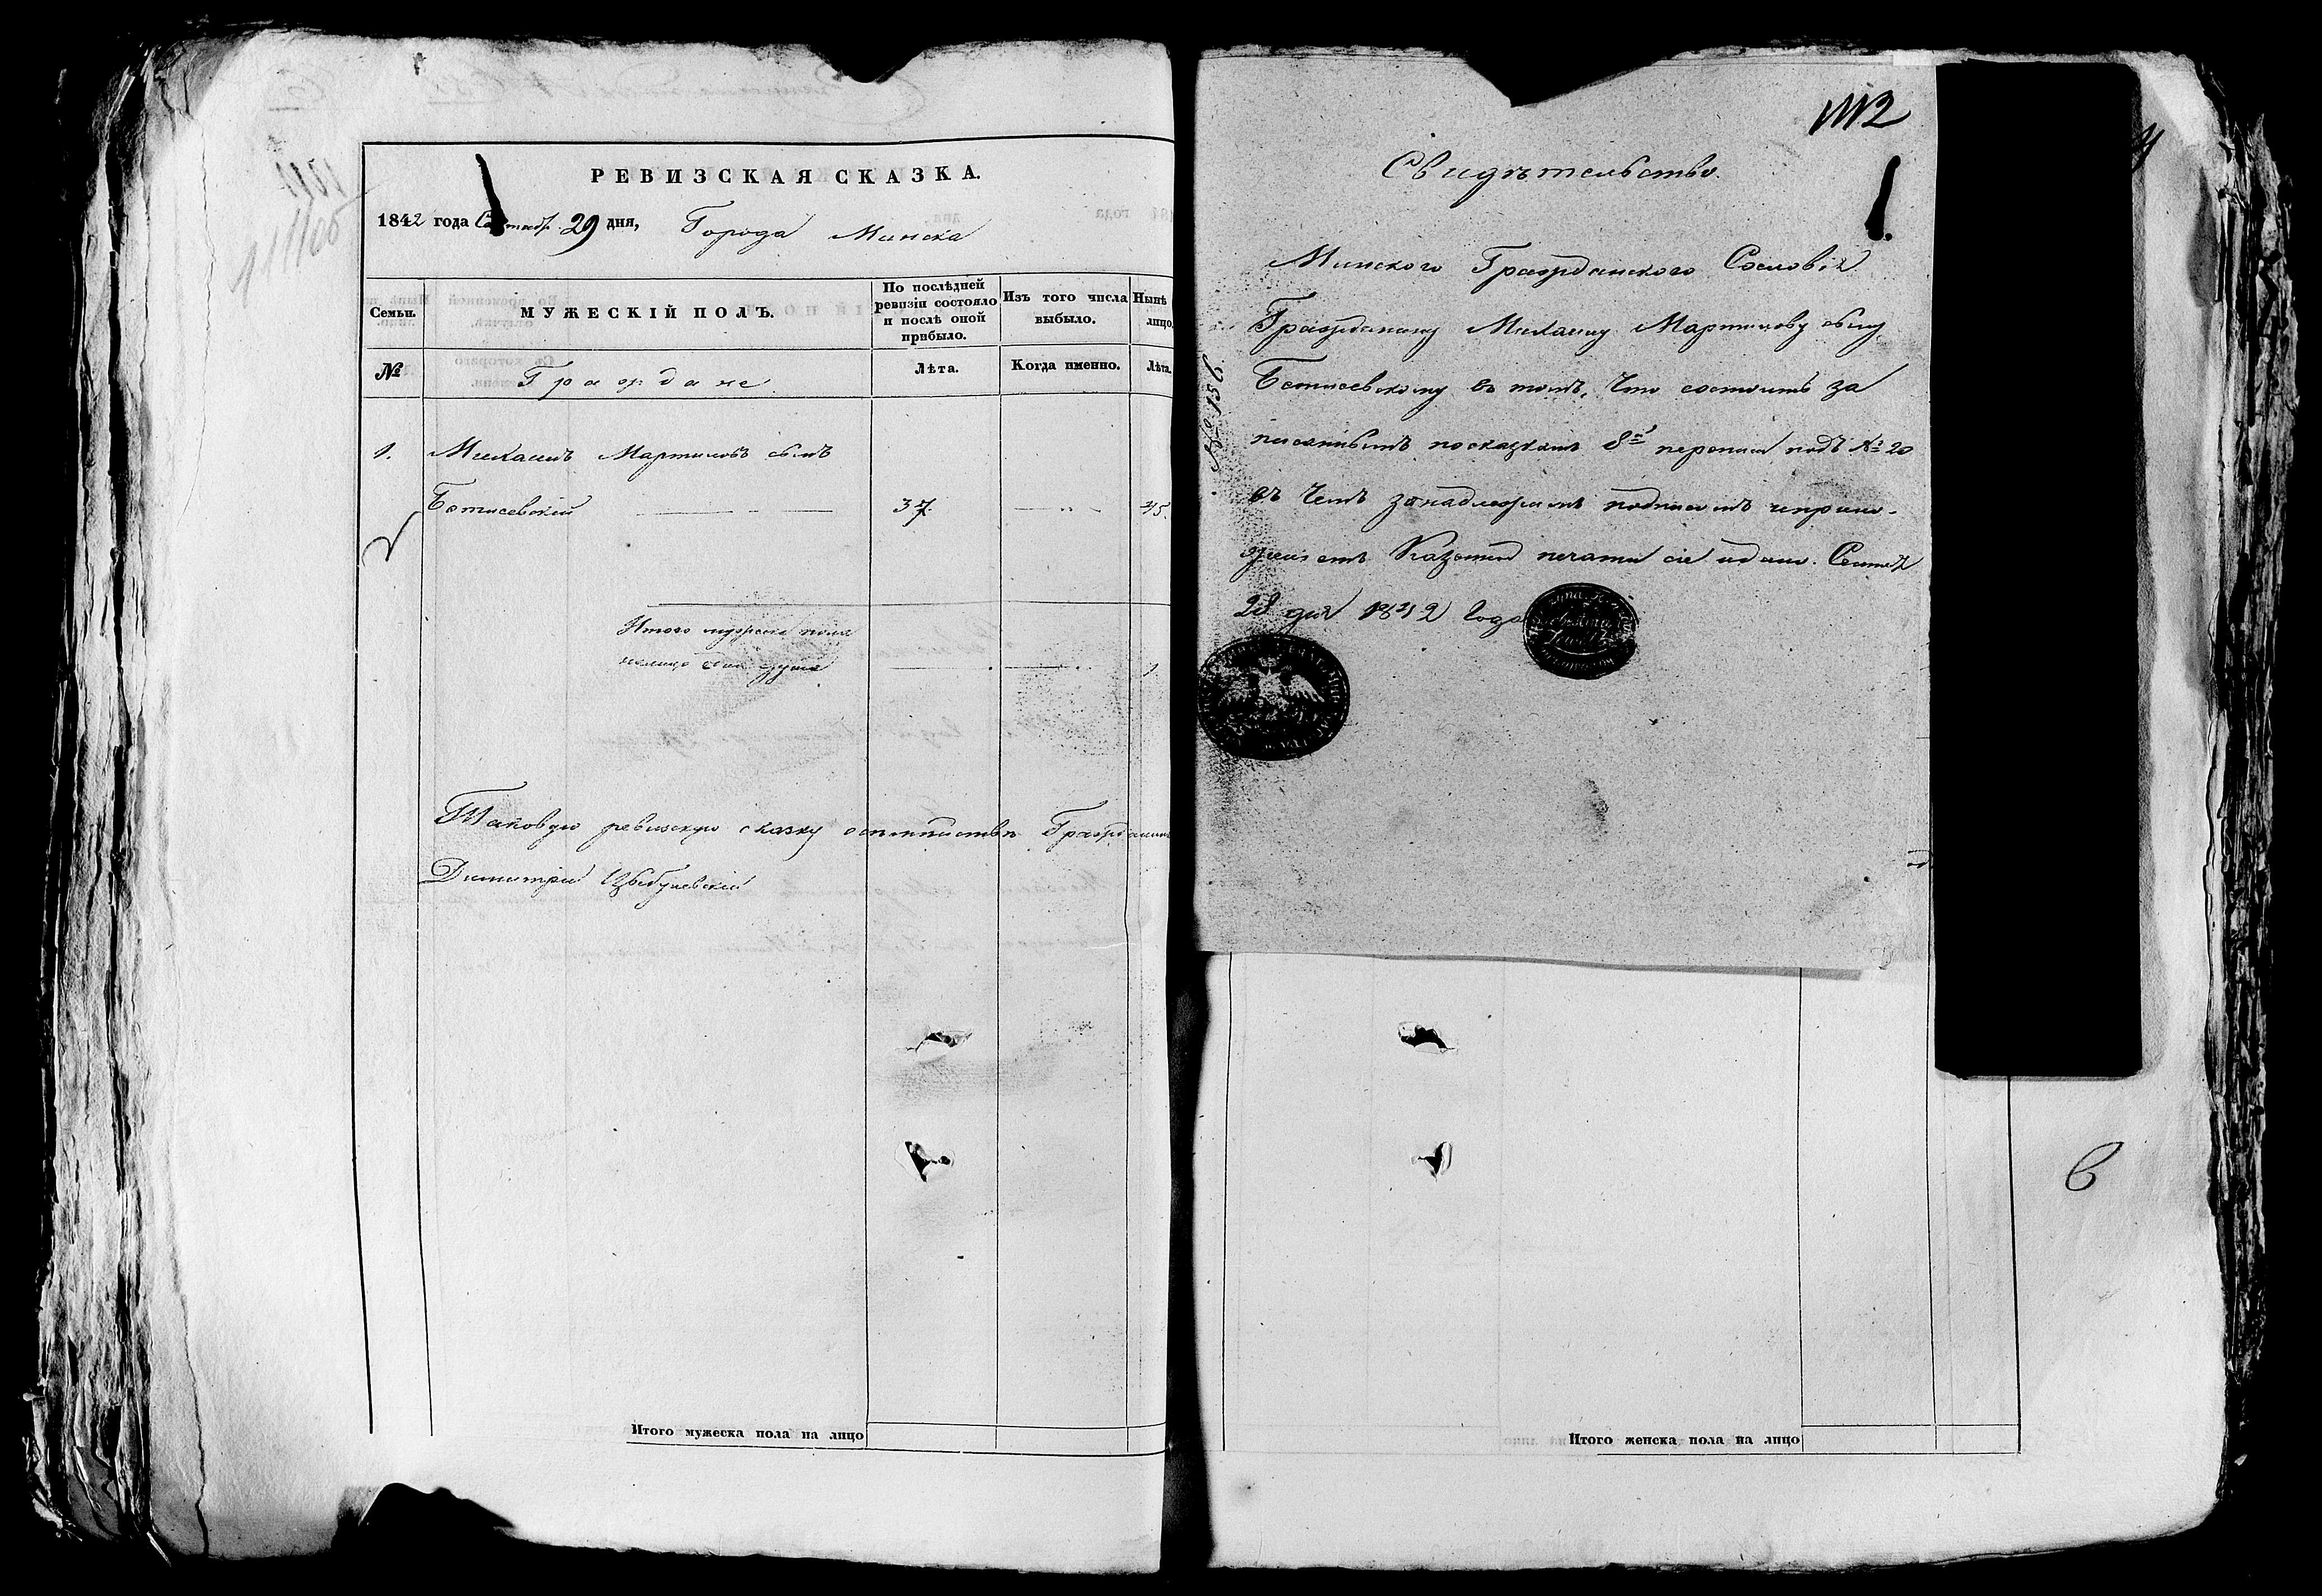 РЕВИЗСКАЯ СКАЗКА.
1842 года Сентябр. 29 дня, Города Минска
Семьи.
МУЖЕСКІЙ ПОЛЪ.
По послѣдней ревизіи состояло и послѣ оной прибыло.
Изъ того числа выбыло.
Нынѣ
лицо
№
Граждане
Лѣта.
Когда именно.
Лѣта.
1. Михаилъ Мартиновъ сынъ
37. 45.
Итого мужеска пола
на лицо одна душа 1
Таковую ревизскую сказку Гражданинъ
Димитрій
Итого мужеска пола на лицо
1112
Свидѣтельство.
1.
Минского Гражданского Сословія
Гражданину Михаилу Мартинову сыну
въ томъ, что состоитъ за
писаннымъ по сказкамъ 8й переписи подъ № 20
въ чемъ за надлежащимъ подписомъ и прило-
женіемъ Казенной печати сіе дано. Сентя
28 дня 1842 года
№ 156.
Итого женска пола на лицо